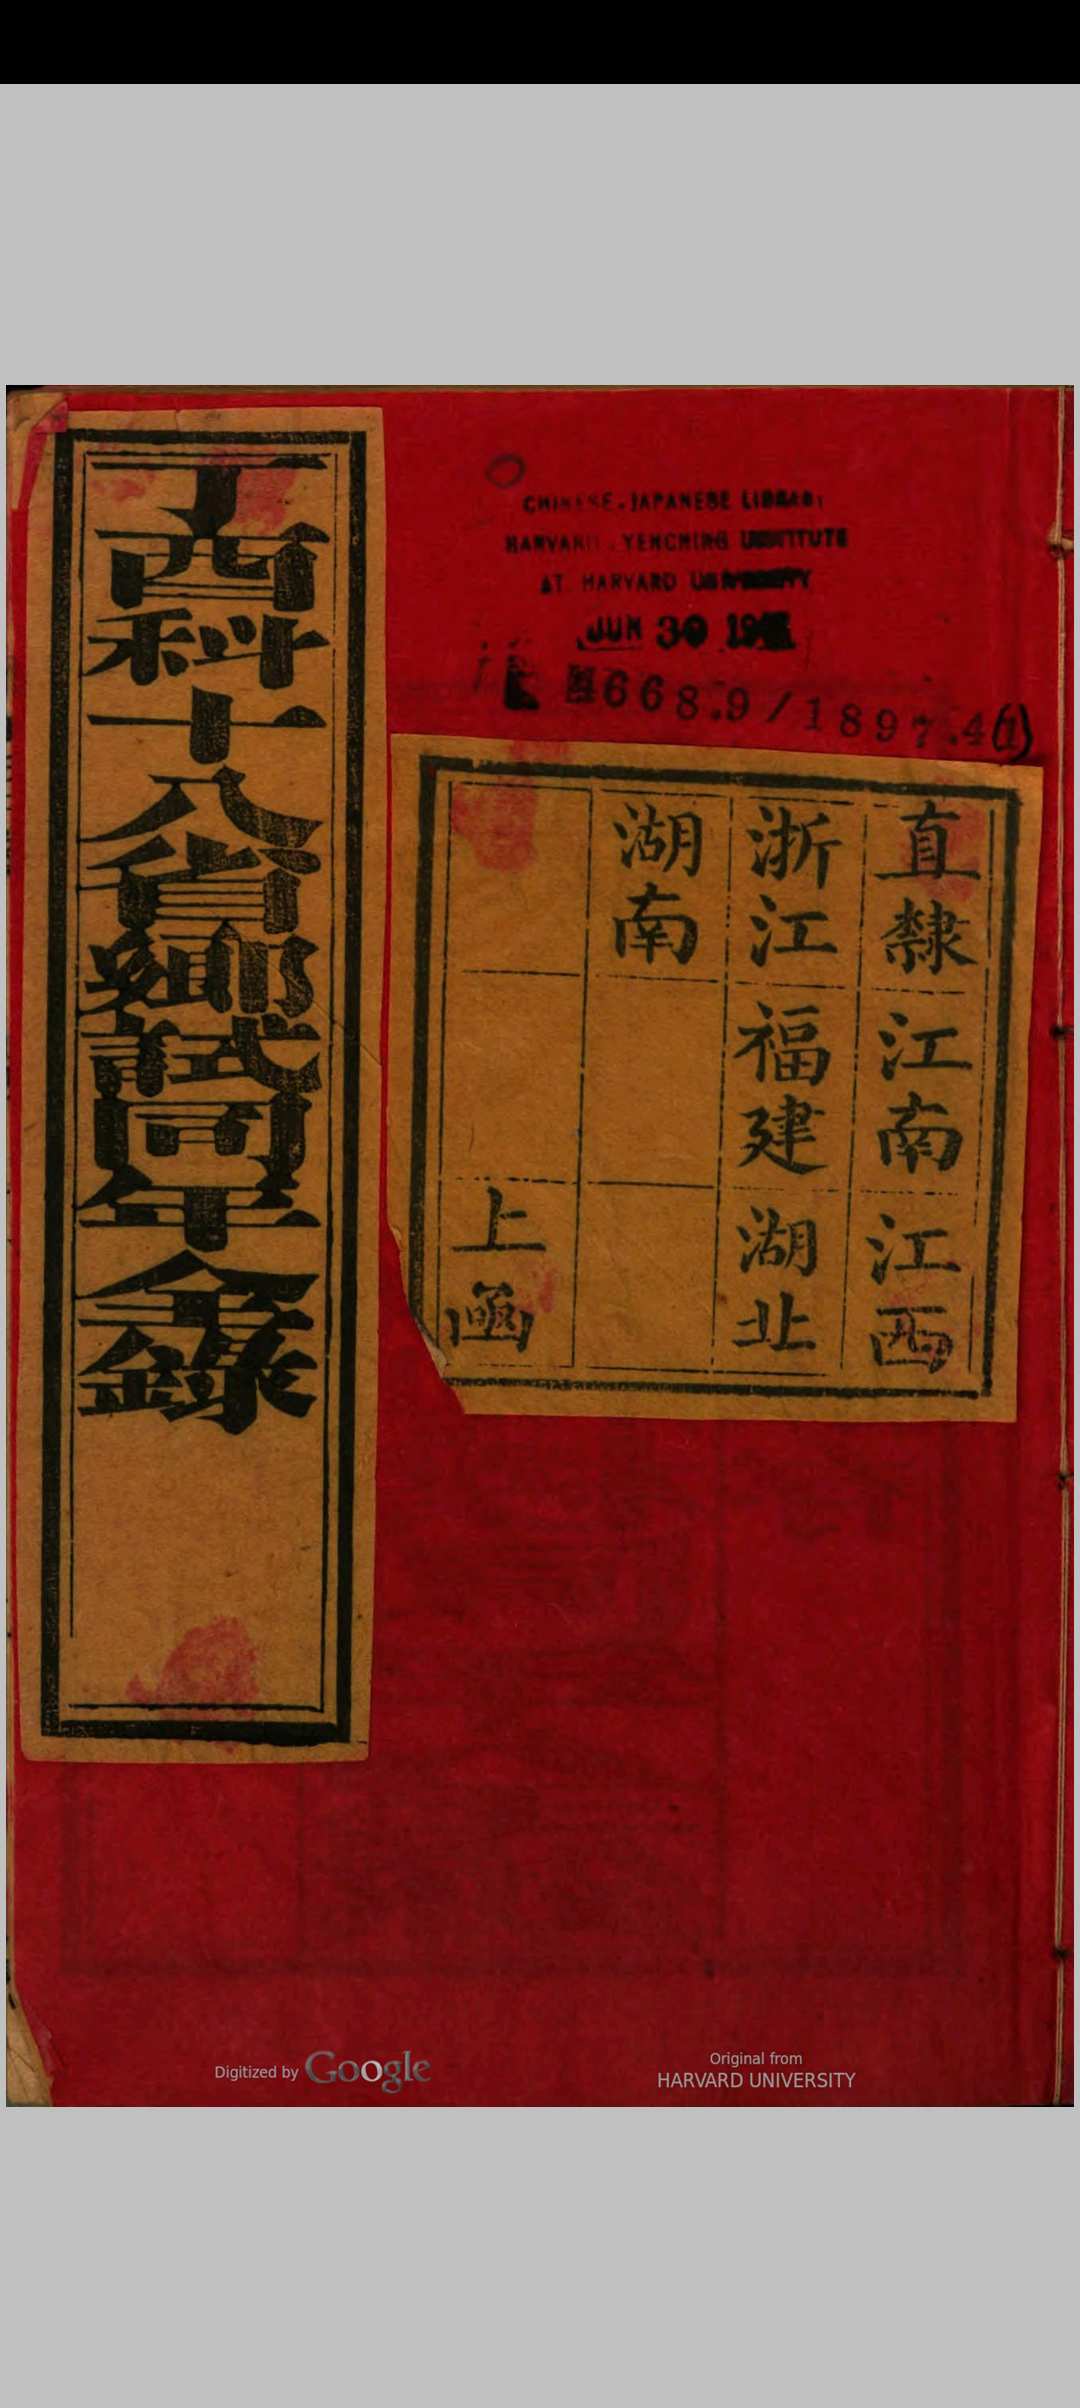 丁酉科十八省鄉試同年全錄
CHINESE-JAPANESE LIBRARY
HARVARD-YENCHING INSTITUTE
AT HARVARD UNIVERSITY
JUN 30
4668.9/1897.4(1)
直隸 江南 江西
浙江 福建 湖北
湖南
上函
Digitized by Google
Original from
HARVARD UNIVERSITY